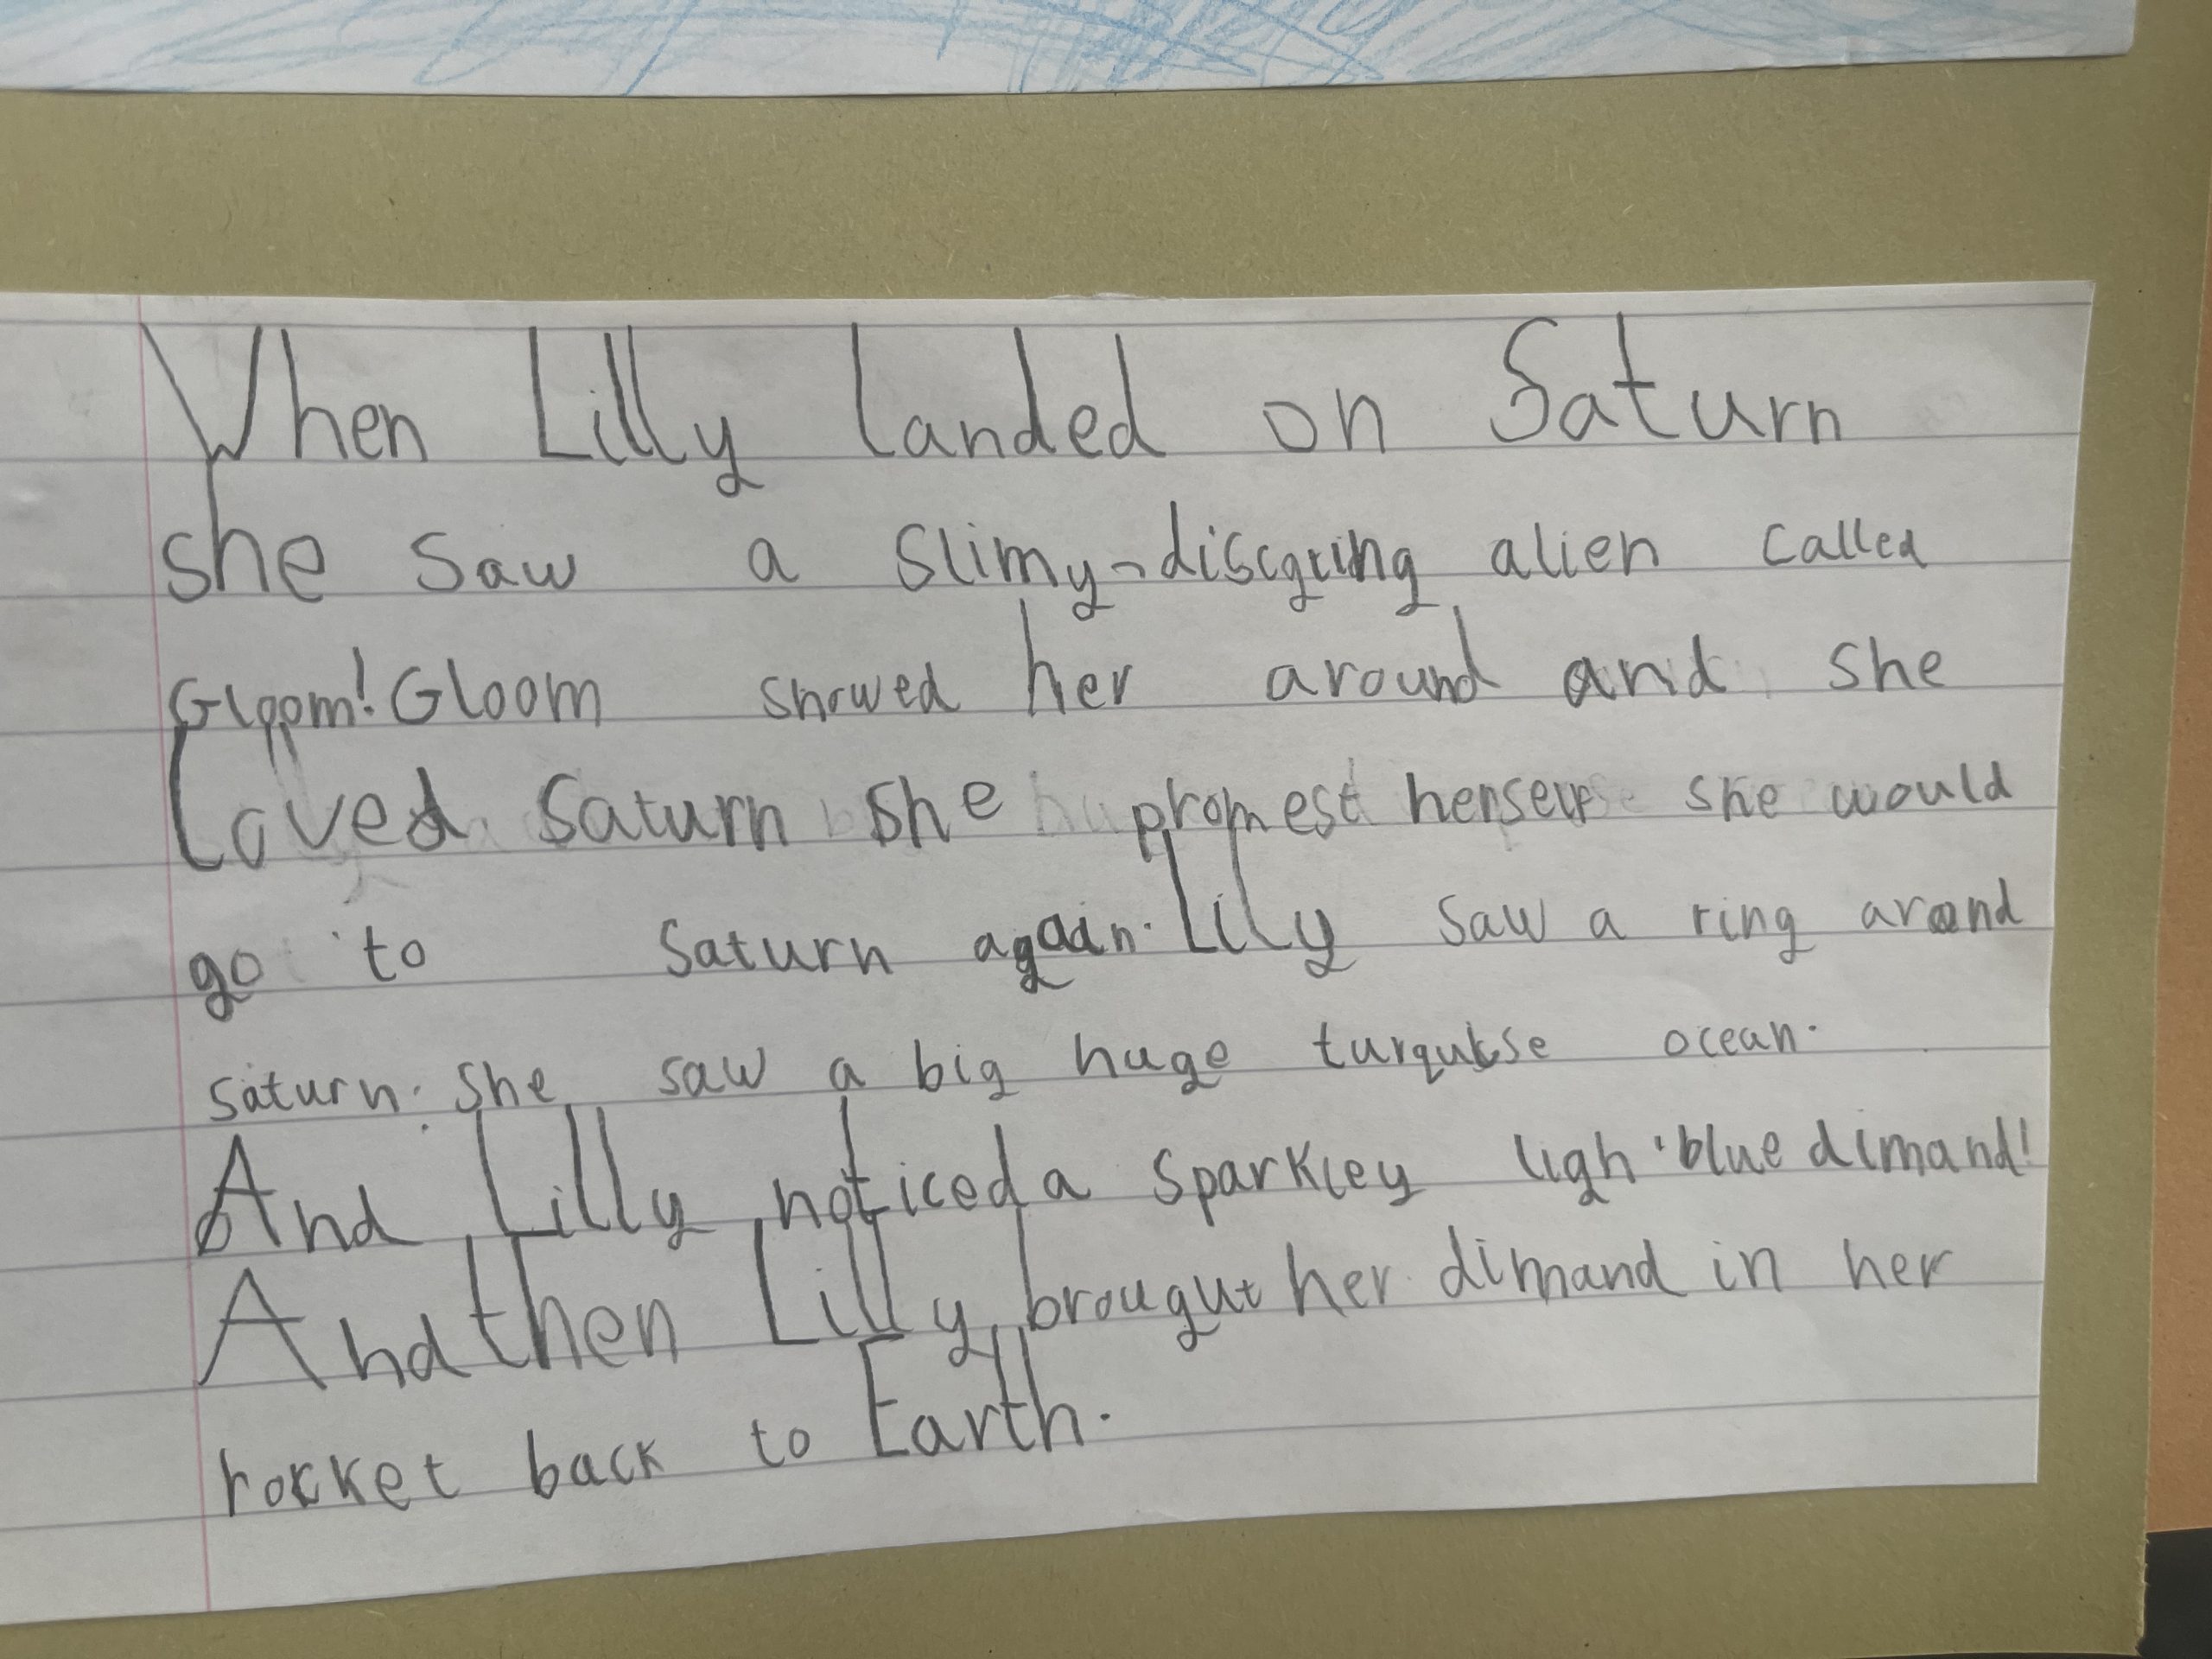 When Lilly landed on Saturn
she saw a slimy-discgting alien called
Gloom! Gloom showed her around and she
Loved Saturn she promest herself she would
go to Saturn again. Lily saw a ring around
saturn. She saw a big huge turquise ocean.
And Lilly noticed a sparkley ligh blue dimand!
And then Lilly brougut her dimand in her
rocket back to Earth.